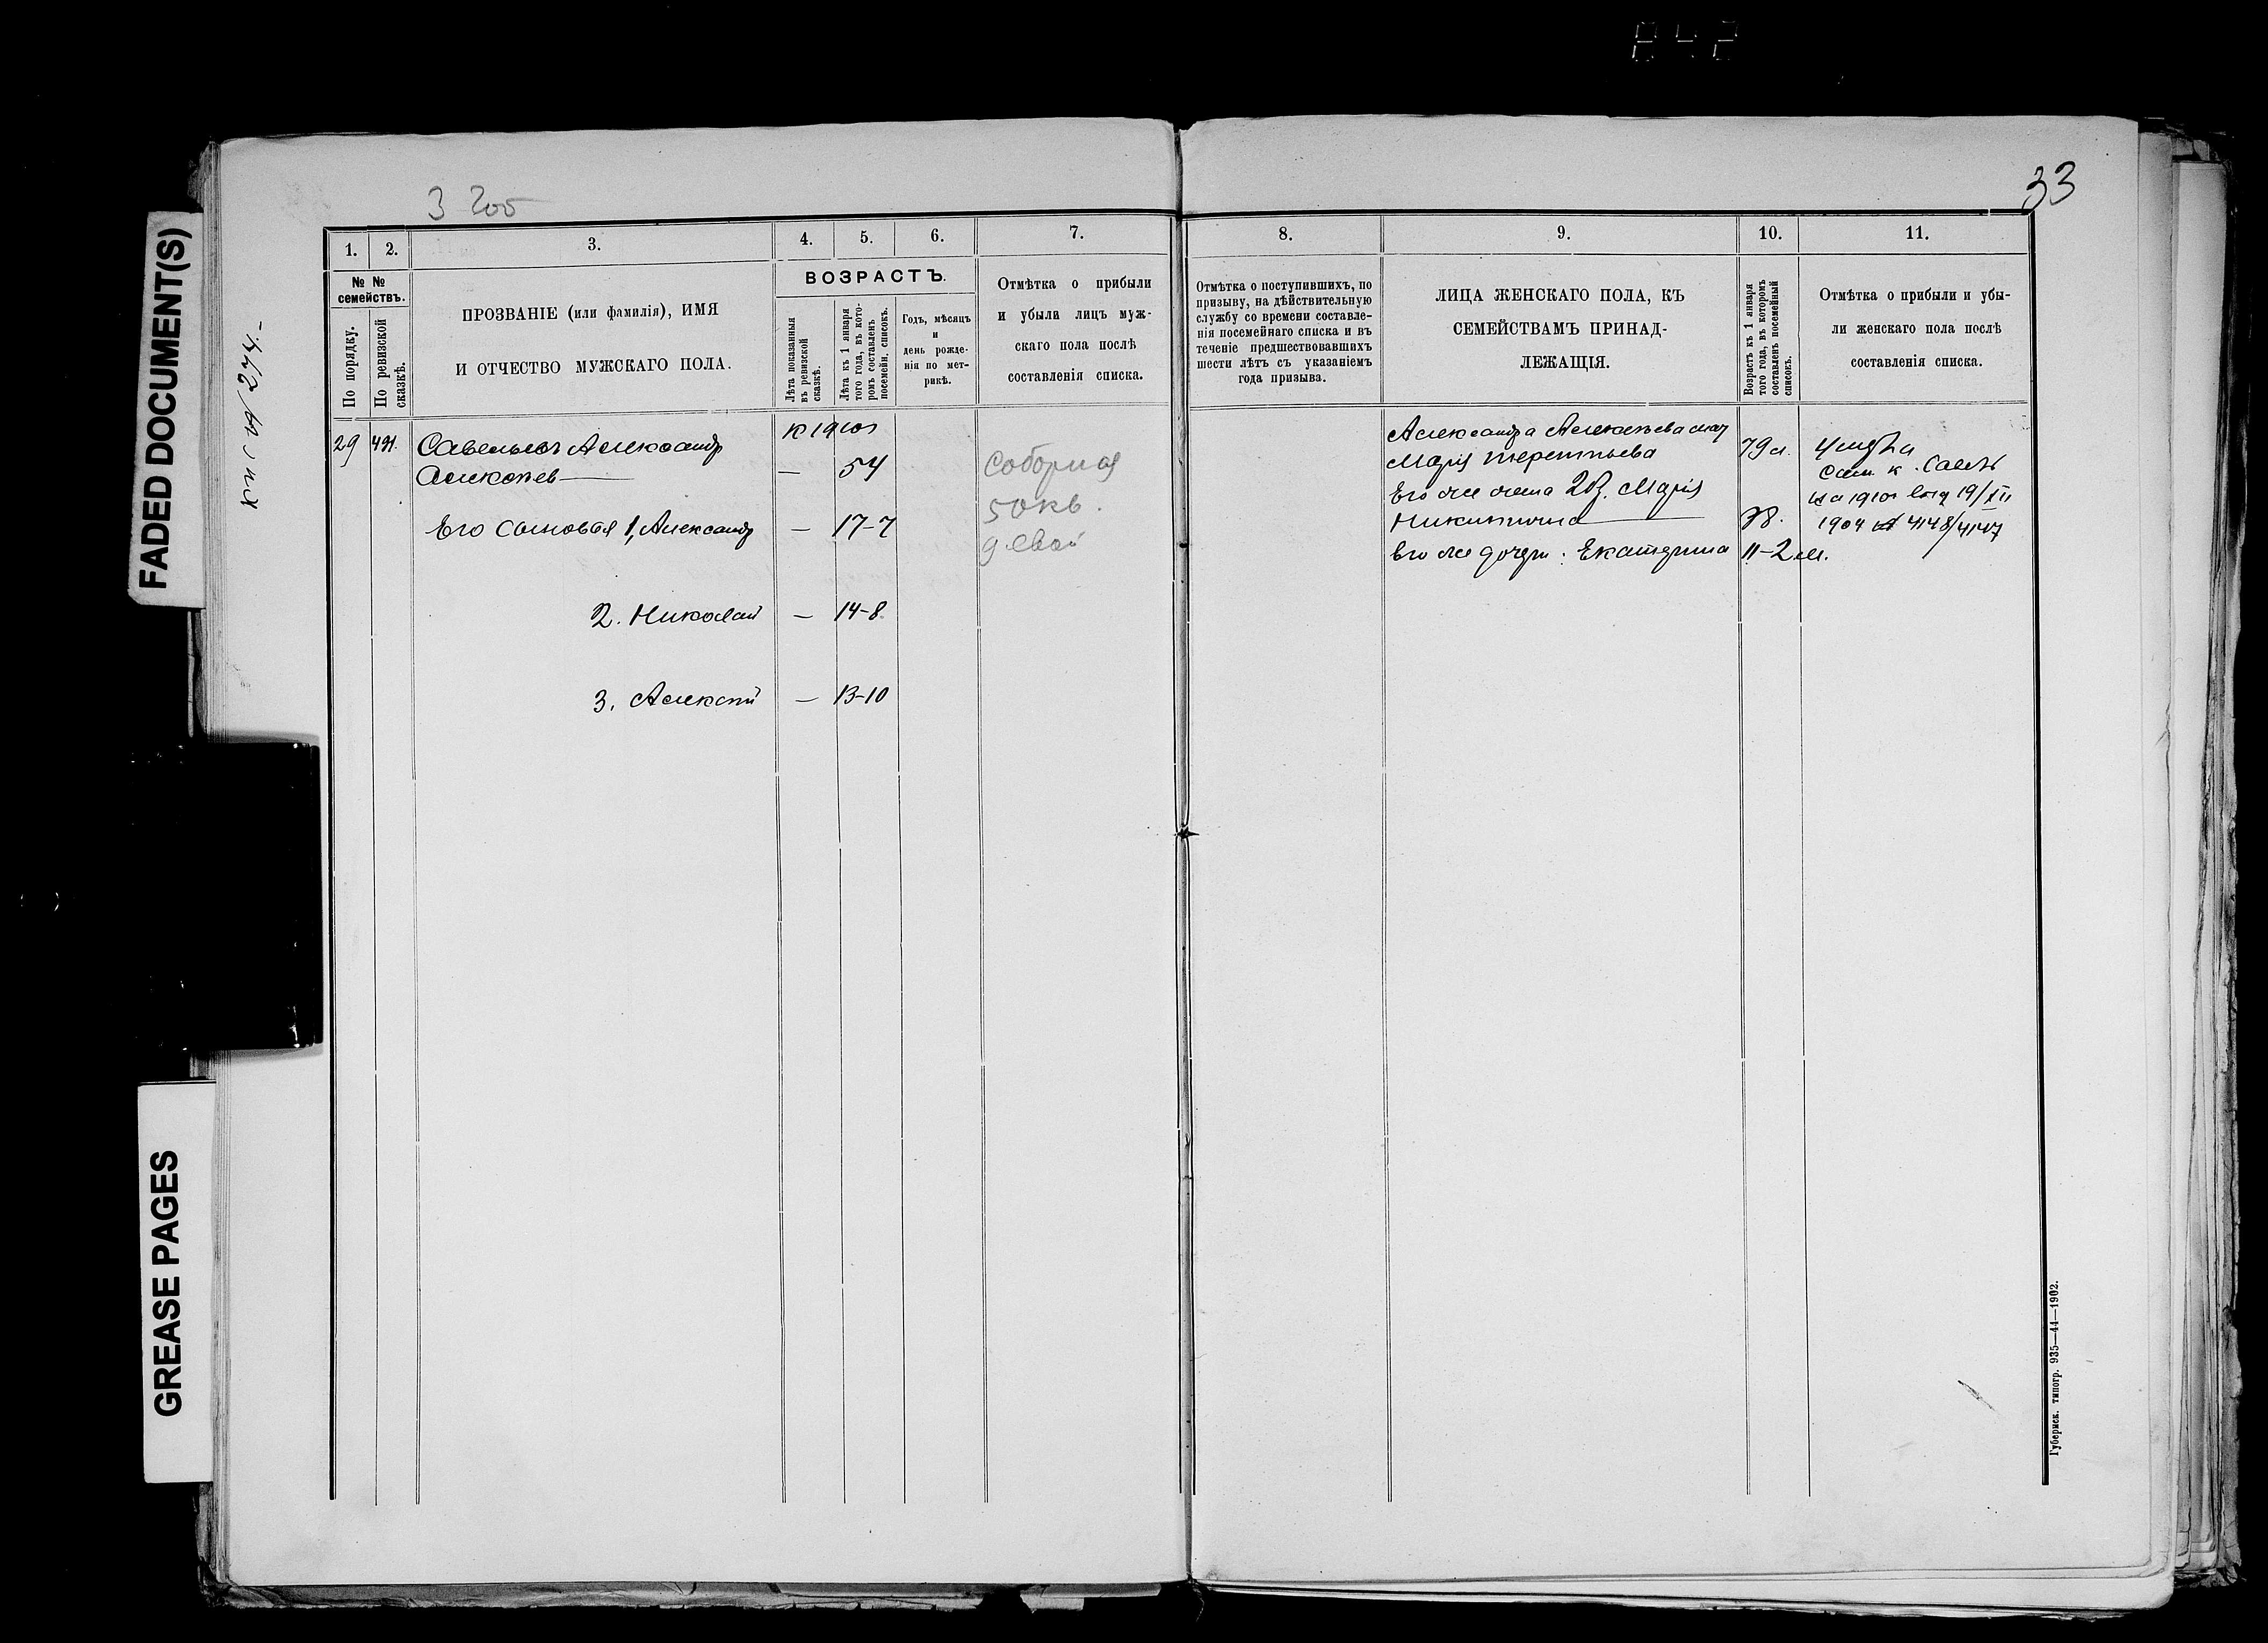 842
FADED DOCUMENT(S)
GREASE PAGES
33
3
1.
2.
3.
4.
5.
6.
7.
№ №
семействъ.
По порядку.
По ревизской
сказкѣ.
ПРОЗВАНІЕ (или фамилія), ИМЯ
И ОТЧЕСТВО МУЖСКАГО ПОЛА.
ВОЗРАСТЪ.
Лѣта показанныя
въ ревизской
сказкѣ.
Лѣта къ 1 января
того года, въ кото-
ромъ составленъ
посемейн. списокъ.
Годъ, мѣсяцъ
и
день рожде-
нія по мет-
рикѣ.
Отмѣтка о прибыли
и убыли лицъ муж-
скаго пола послѣ
составленія списка.
29 491. Савельевъ Александр
Алексѣев — 54
Его сыновья 1, Александр — 17-7
2. Николай — 14-8
3. Алексѣй — 13-10
Соборная
50 кв.
8.
9.
10.
11.
Отмѣтка о поступившихъ, по
призыву, на дѣйствительную
службу со времени составле-
нія посемейнаго списка и въ
теченіе предшествовавшихъ
шести лѣтъ съ указаніемъ
года призыва.
ЛИЦА ЖЕНСКАГО ПОЛА, КЪ
СЕМЕЙСТВАМЪ ПРИНАД-
ЛЕЖАЩІЯ.
Возрастъ къ 1 января
того года, въ которомъ
составленъ посемейный
списокъ.
Отмѣтка о прибыли и убы-
ли женскаго пола послѣ
составленія списка.
Александра Алексѣева мат
Марія Терентьева 79 л.
Его же жена 2 б. Марія
Никитична 38.
Его же дочери: Екатерина 11-2 м.
19/XII
1904 4148/4147
Губернск. типогр. 935—44—1902.